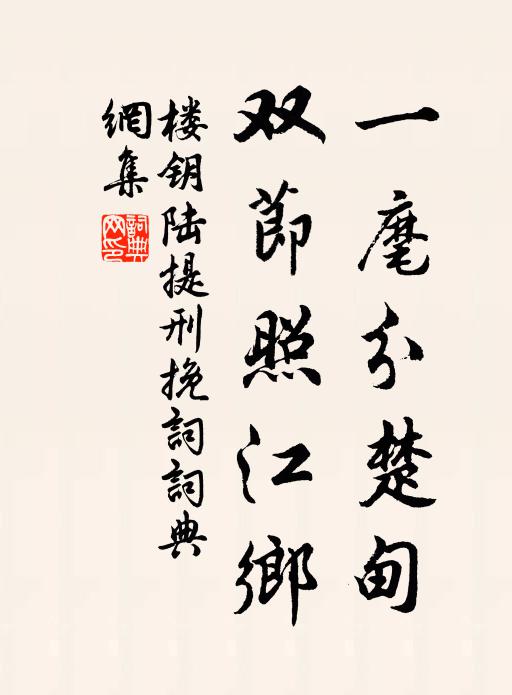 一麾分楚甸
双莭照江鄉
楼钥陆提刑挽詞詞典
網集
詞典
网印